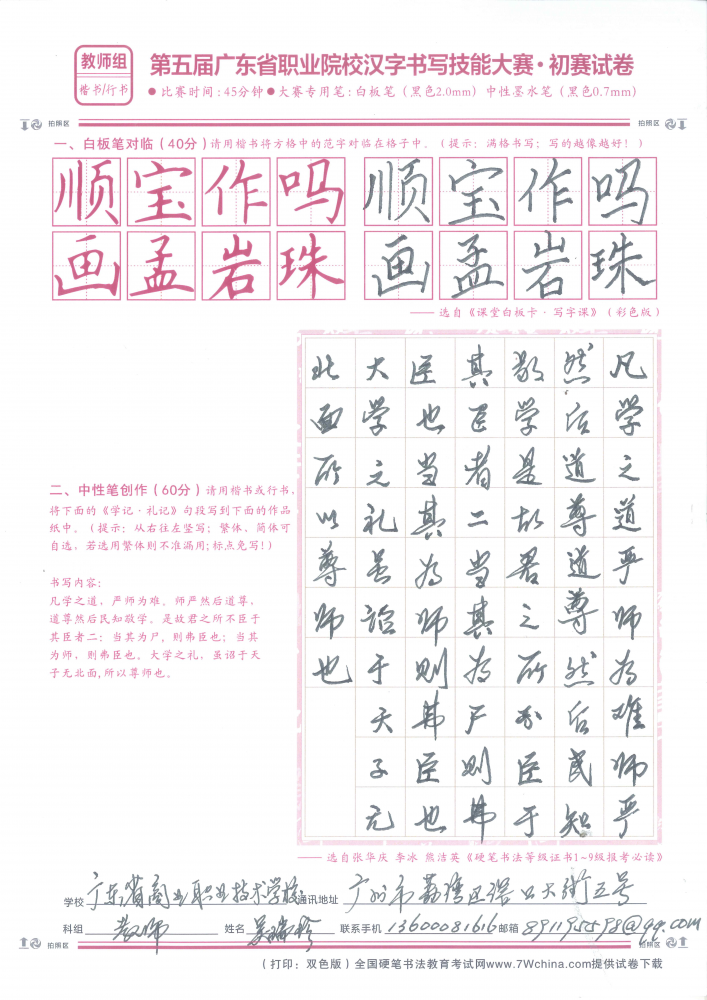 教师组
楷书/行书
第五届广东省职业院校汉字书写技能大赛·初赛试卷
●比赛时间:45分钟●大赛专用笔:白板笔(黑色2.0mm) 中性墨水笔(黑色0.7mm)
拍照区
拍照区
一、白板笔对临(40分)请用楷书将方格中的范字对临在格子中。(提示:满格书写;写的越像越好!)
顺宝作吗 顺宝作吗
画孟岩珠 画孟岩珠
——选自《课堂白板卡·写字课》(彩色版)
二、中性笔创作(60分)请用楷书或行书,
将下面的《学记·礼记》句段写到下面的作品
纸中。(提示:从右往左竖写;繁体、简体可
自选,若选用繁体则不准漏用;标点免写!)
书写内容:
凡学之道,严师为难。师严然后道尊,
道尊然后民知敬学。是故君之所不臣于
其臣者二:当其为尸,则弗臣也;当其
为师,则弗臣也。大学之礼,虽诏于天
子无北面,所以尊师也。
凡学之道严师为难师严
然后道尊道尊然后民知
敬学是故君之所不臣于
其臣者二当其为尸则弗
臣也当其为师则弗臣也
大学之礼虽诏于天子无
北面所以尊师也
——选自张华庆 李冰 熊洁英《硬笔书法等级证书1~9级报考必读》
学校 广东省商业职业技术学校 通讯地址 广州市荔湾区 口大街五号
科组 教师 姓名 联系手机 13600081616 邮箱 891195598@qq.com
拍照区
拍照区
(打印:双色版)全国硬笔书法教育考试网www.7Wchina.com提供试卷下载